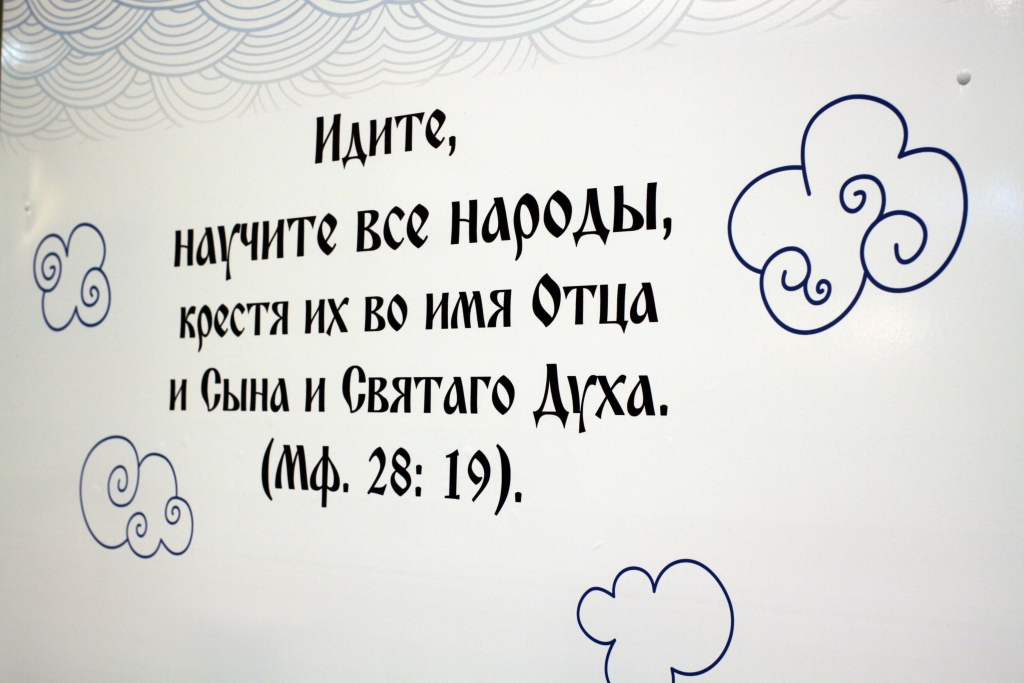 Идите,
научите все народы,
крестя их во имя Отца
и Сына и Святаго Духа.
(Мф. 28: 19).